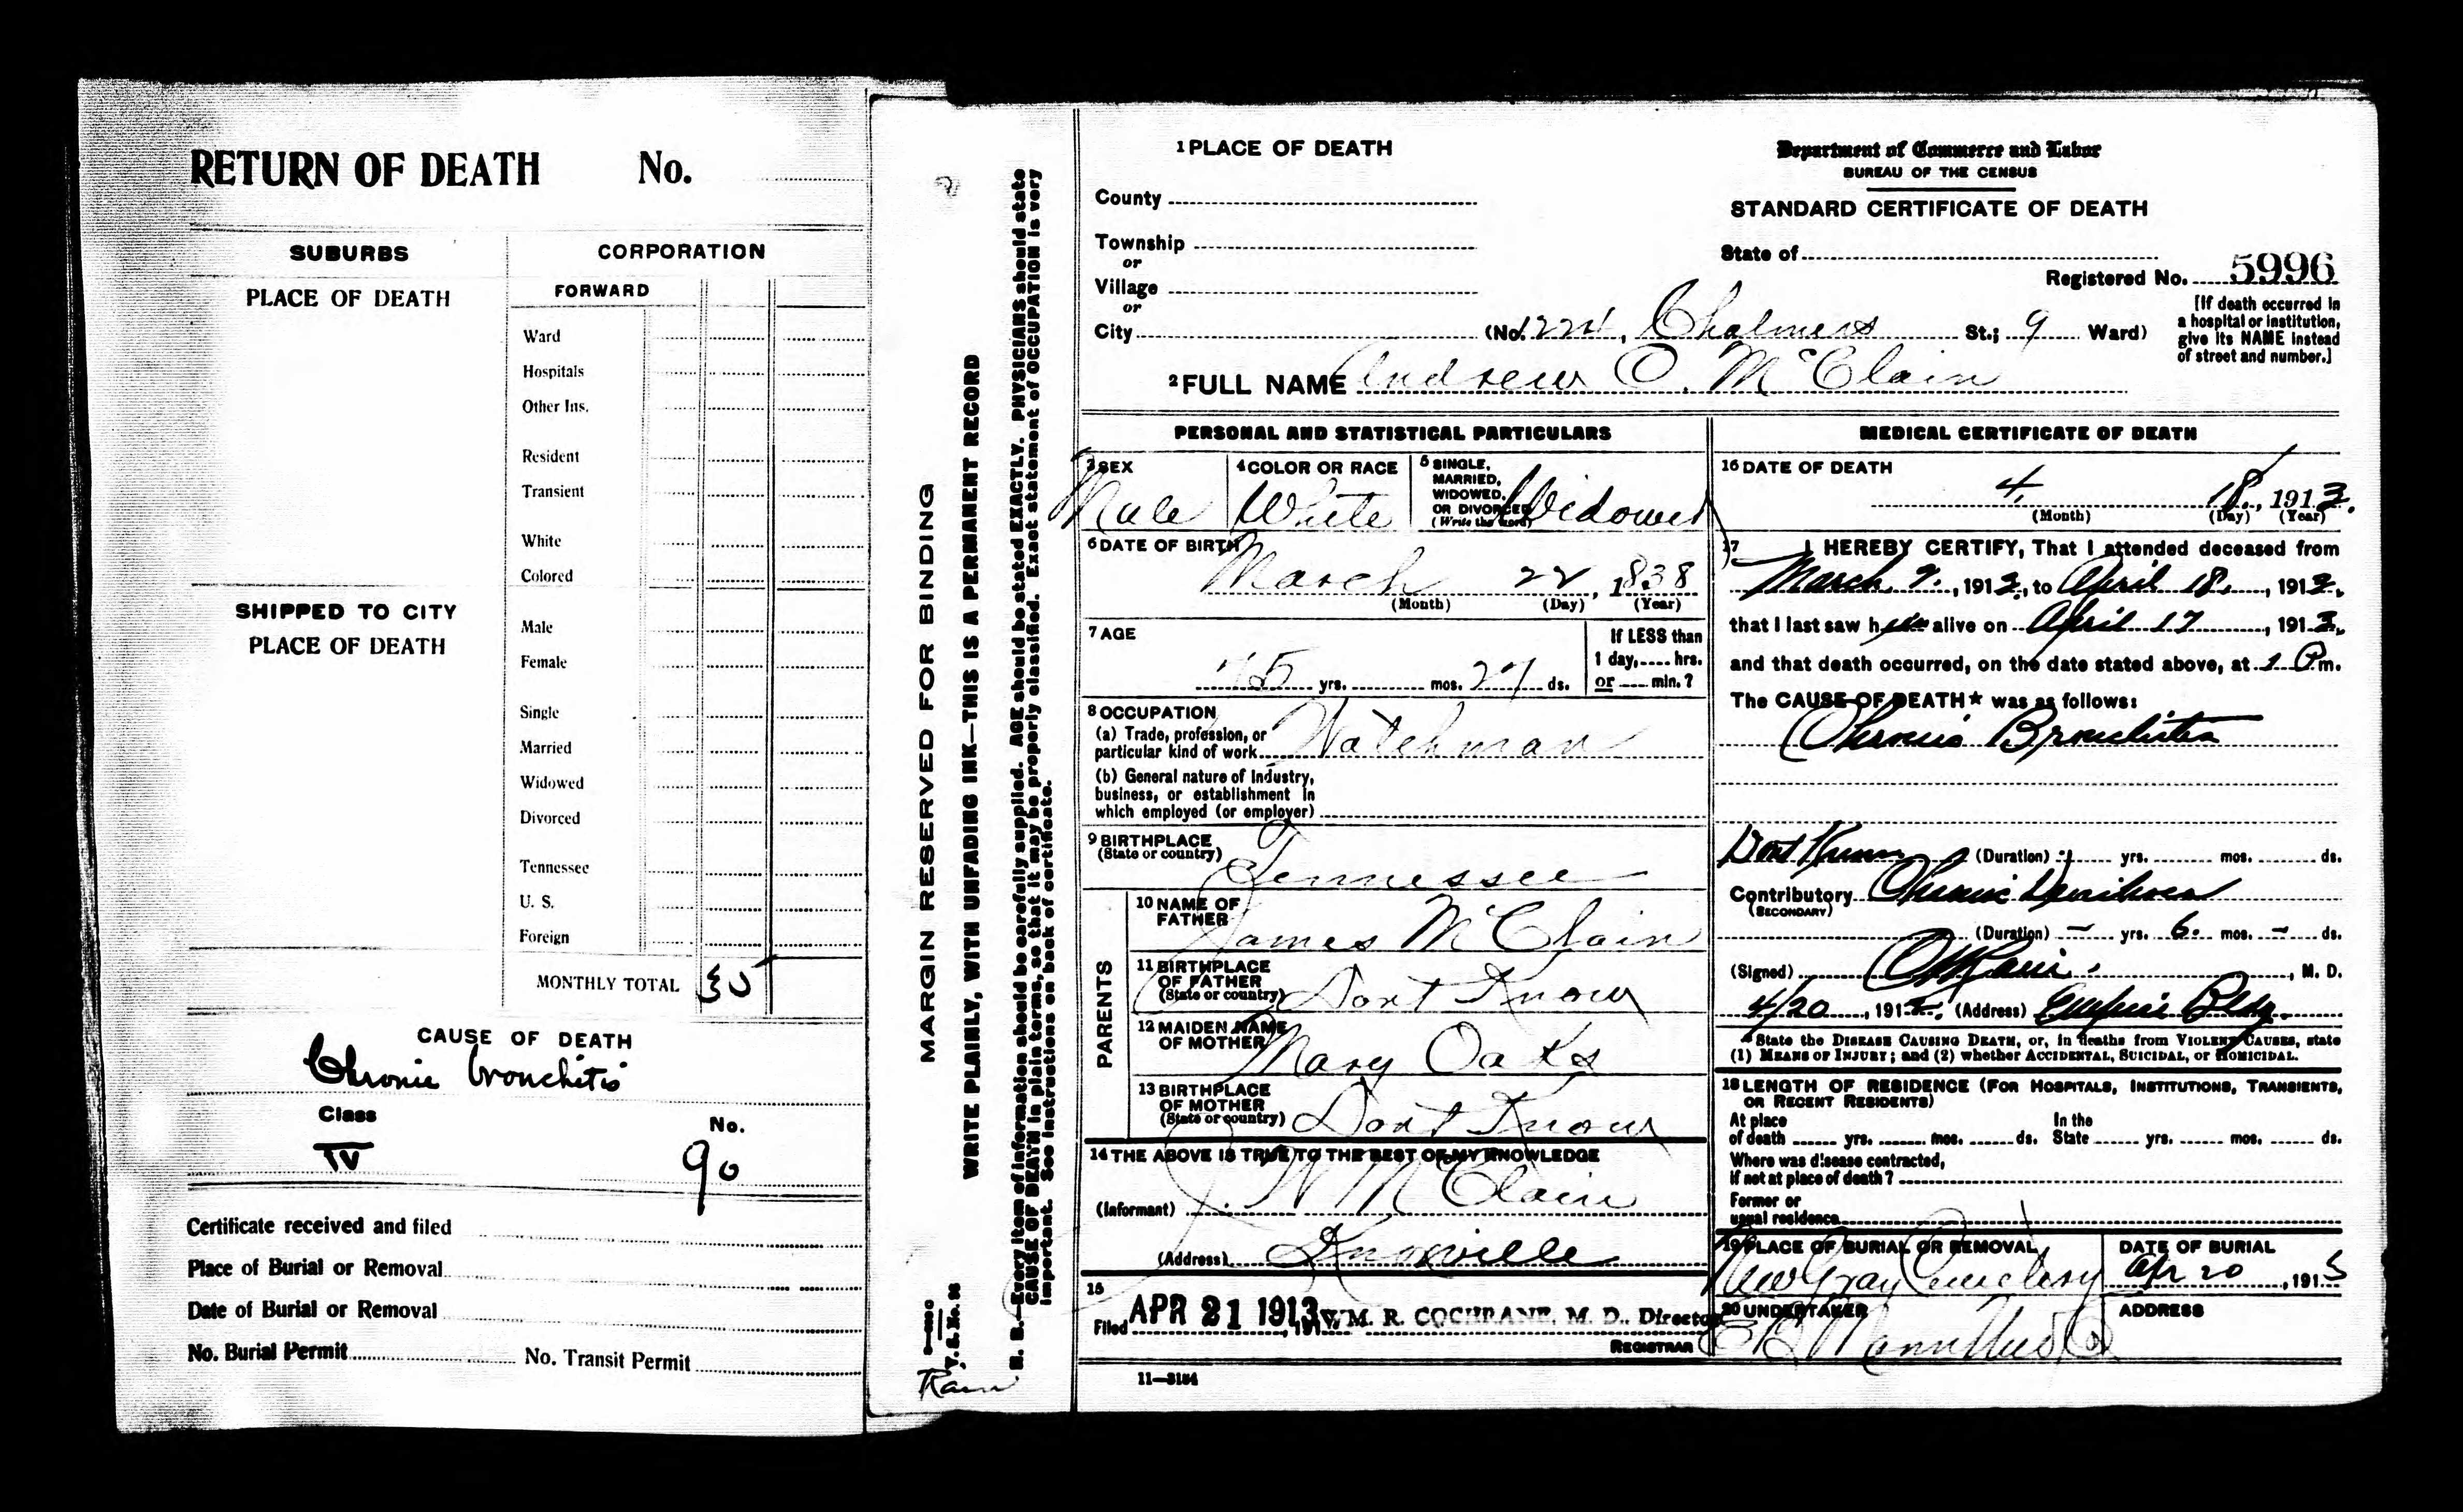 RETURN OF DEATH No.
SUBURBS
PLACE OF DEATH
CORPORATION
FORWARD
Ward
Hospitals
Other Ins.
Resident
Transient
White
Colored
SHIPPED TO CITY
PLACE OF DEATH
Male
Female
Single
Married
Widowed
Divorced
Tennessee
U. S.
Foreign
MONTHLY TOTAL 30
CAUSE OF DEATH
Chronic bronchitis
Class No.
IV 90
Certificate received and filed
Place of Burial or Removal
Date of Burial or Removal
No. Burial Permit No. Transit Permit
MARGIN RESERVED FOR BINDING
WRITE PLAINLY, WITH UNFADING INK—THIS IS A PERMANENT RECORD
N. B.—Every item of information should be carefully supplied. AGE should be stated EXACTLY. PHYSICIANS should state
CAUSE OF DEATH in plain terms, so that it may be properly classified. Exact statement of OCCUPATION is very
important. See instructions on back of certificate.
V. S. No. 26
1 PLACE OF DEATH
County
Township
or
Village
or
City (No. 1224, Chalmers St.; 9 Ward)
Department of Commerce and Labor
BUREAU OF THE CENSUS
STANDARD CERTIFICATE OF DEATH
State of
Registered No. 5996
[If death occurred in
a hospital or institution,
give its NAME instead
of street and number.]
2 FULL NAME Andrew O. McClain
PERSONAL AND STATISTICAL PARTICULARS
3 SEX
Male
4 COLOR OR RACE
White
5 SINGLE,
MARRIED,
WIDOWED,
OR DIVORCED
(Write the word)
Widower
6 DATE OF BIRTH
March 22, 1838
(Month) (Day) (Year)
7 AGE
75 yrs. mos. 27 ds.
If LESS than
1 day, hrs.
or min.?
8 OCCUPATION
(a) Trade, profession, or
particular kind of work Watchman
(b) General nature of Industry,
business, or establishment in
which employed (or employer)
9 BIRTHPLACE
(State or country)
Tennessee
PARENTS
10 NAME OF
FATHER
James McClain
11 BIRTHPLACE
OF FATHER
(State or country) Dont Know
12 MAIDEN NAME
OF MOTHER
Mary Oaks
13 BIRTHPLACE
OF MOTHER
(State or country) Dont Know
14 THE ABOVE IS TRUE TO THE BEST OF MY KNOWLEDGE
(Informant) J. W McClain
(Address) Knoxville
15
Filed APR 21 1913, 191 WM. R. COCHRANE, M. D., Director
REGISTRAR
11—3184
MEDICAL CERTIFICATE OF DEATH
16 DATE OF DEATH
4, 18, 1913.
(Month) (Day) (Year)
17 I HEREBY CERTIFY, That I attended deceased from
March 9, 1913, to April 18, 1913,
that I last saw him alive on April 17, 1913,
and that death occurred, on the date stated above, at 1 P.m.
The CAUSE OF DEATH* was as follows:
Chronic Bronchitis
Dont Know (Duration) yrs. mos. ds.
Contributory Chronic
(SECONDARY)
(Duration) – yrs. 6. mos. – ds.
(Signed) , M. D.
4/20, 191 (Address) Empire Bldg.
*State the DISEASE CAUSING DEATH, or, in deaths from VIOLENT CAUSES, state
(1) MEANS OF INJURY; and (2) whether ACCIDENTAL, SUICIDAL, or HOMICIDAL.
18 LENGTH OF RESIDENCE (FOR HOSPITALS, INSTITUTIONS, TRANSIENTS,
OR RECENT RESIDENTS)
At place In the
of death yrs. mos. ds. State yrs. mos. ds.
Where was disease contracted,
If not at place of death?
Former or
usual residence
19 PLACE OF BURIAL OR REMOVAL
New Gray Cemetery
DATE OF BURIAL
Apr 20, 1913
20 UNDERTAKER
E B Mann Und Co
ADDRESS